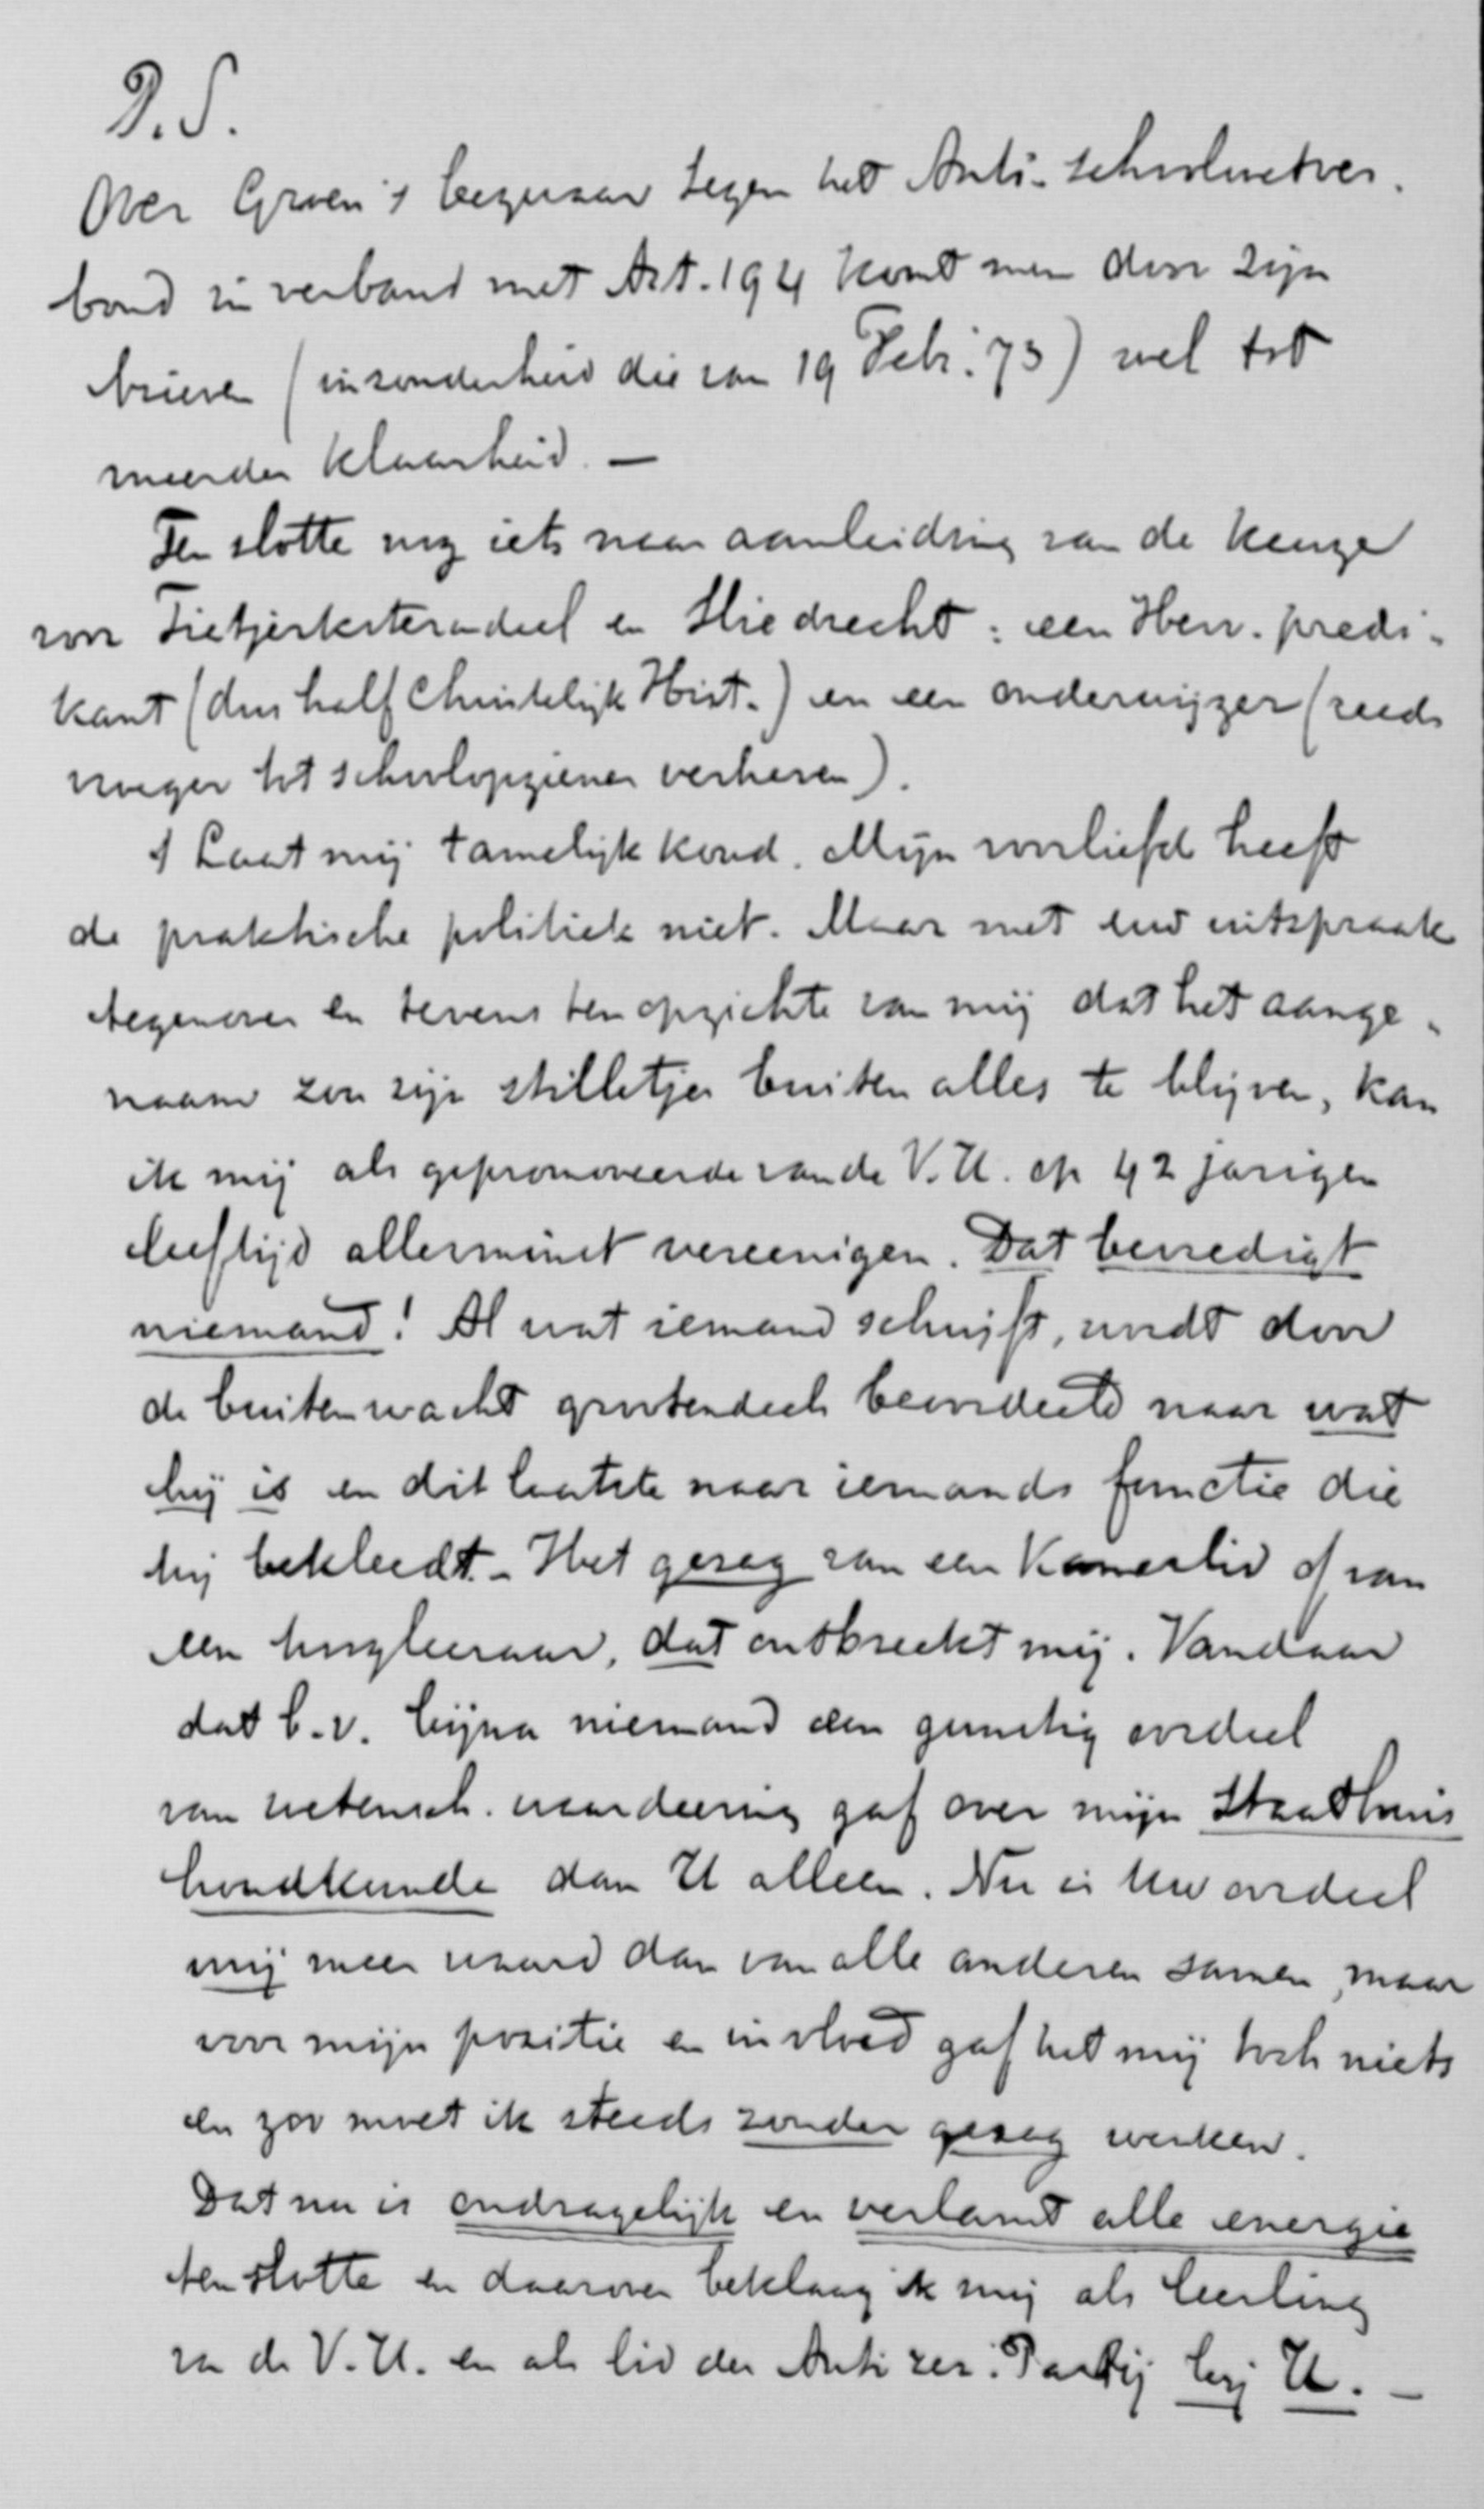 P.S.
Over Groen's bezwaar tegen het Anti-schoolwetver-
bond in verband met Art. 194 komt men door zijn
brieven (inzonderheid die van 19 Febr. 73) wel tot
meerder klaarheid. —
Ten slotte nog iets naar aanleiding van de keuze
voor Tietjerksteradeel en Sliedrecht: een Herv. predi-
kant (dus half Christelijk Hist.) en een onderwijzer (reeds
vroeger tot schoolopziener verheven).
't Laat mij tamelijk koud. Mijn voorliefde heeft
de praktische politiek niet. Maar met Uw uitspraak
tegenover en tevens ten opzichte van mij dat het aange-
naam zou zijn stilletjes buiten alles te blijven, kan
ik mij als gepromoveerde van de V.U. op 42 jarigen
leeftijd allerminst vereenigen. Dat bevredigt
niemand! Al wat iemand schrijft, wordt door
de buitenwacht grootendeels beoordeeld naar wat
hij is en dit laatste naar iemands functie die
hij bekleedt. - Het gezag van een Kamerlid of van
een hoogleeraar, dat ontbreekt mij. Vandaar
dat b.v. bijna niemand een gunstig oordeel
van wetensch. waardeering gaf over mijn Staathuis
houdkunde dan U alleen. Nu is Uw oordeel
mij meer waard dan van alle anderen samen, maar
voor mijn positie en invloed gaf het mij toch niets
en zoo moet ik steeds zonder gezag werken.
Dat nu is ondragelijk en verlamt alle energie
ten slotte en daarover beklaag ik mij als leerling
van de V.U. en als lid der Antirev. Partij bij U. —